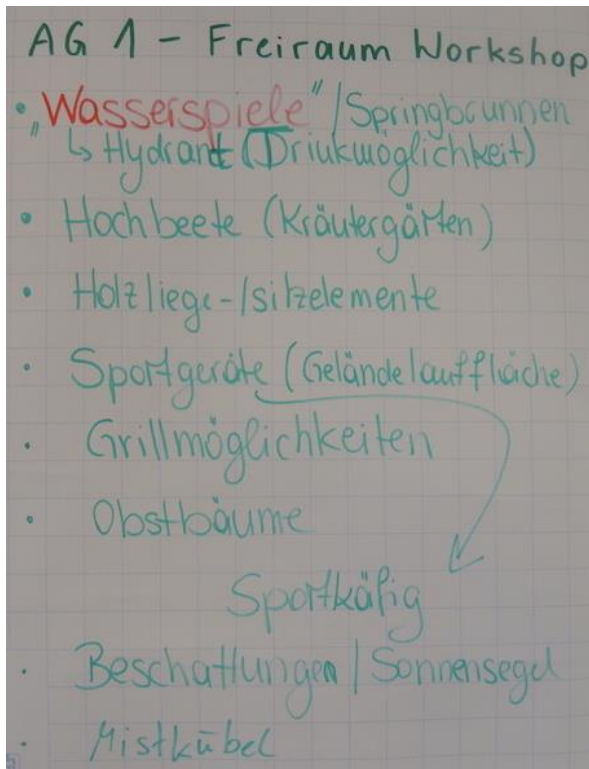 AG 1 - Freiraum Workshop
• „Wasserspiele“/Springbrunnen
↳ Hydrant (Trinkmöglichkeit)
• Hochbeete (Kräutergärten)
• Holzliege-/sitzelemente
• Sportgeräte (Geländelauffläche)
• Grillmöglichkeiten
• Obstbäume
Sportkäfig
• Beschattungen / Sonnensegel
• Mistkübel